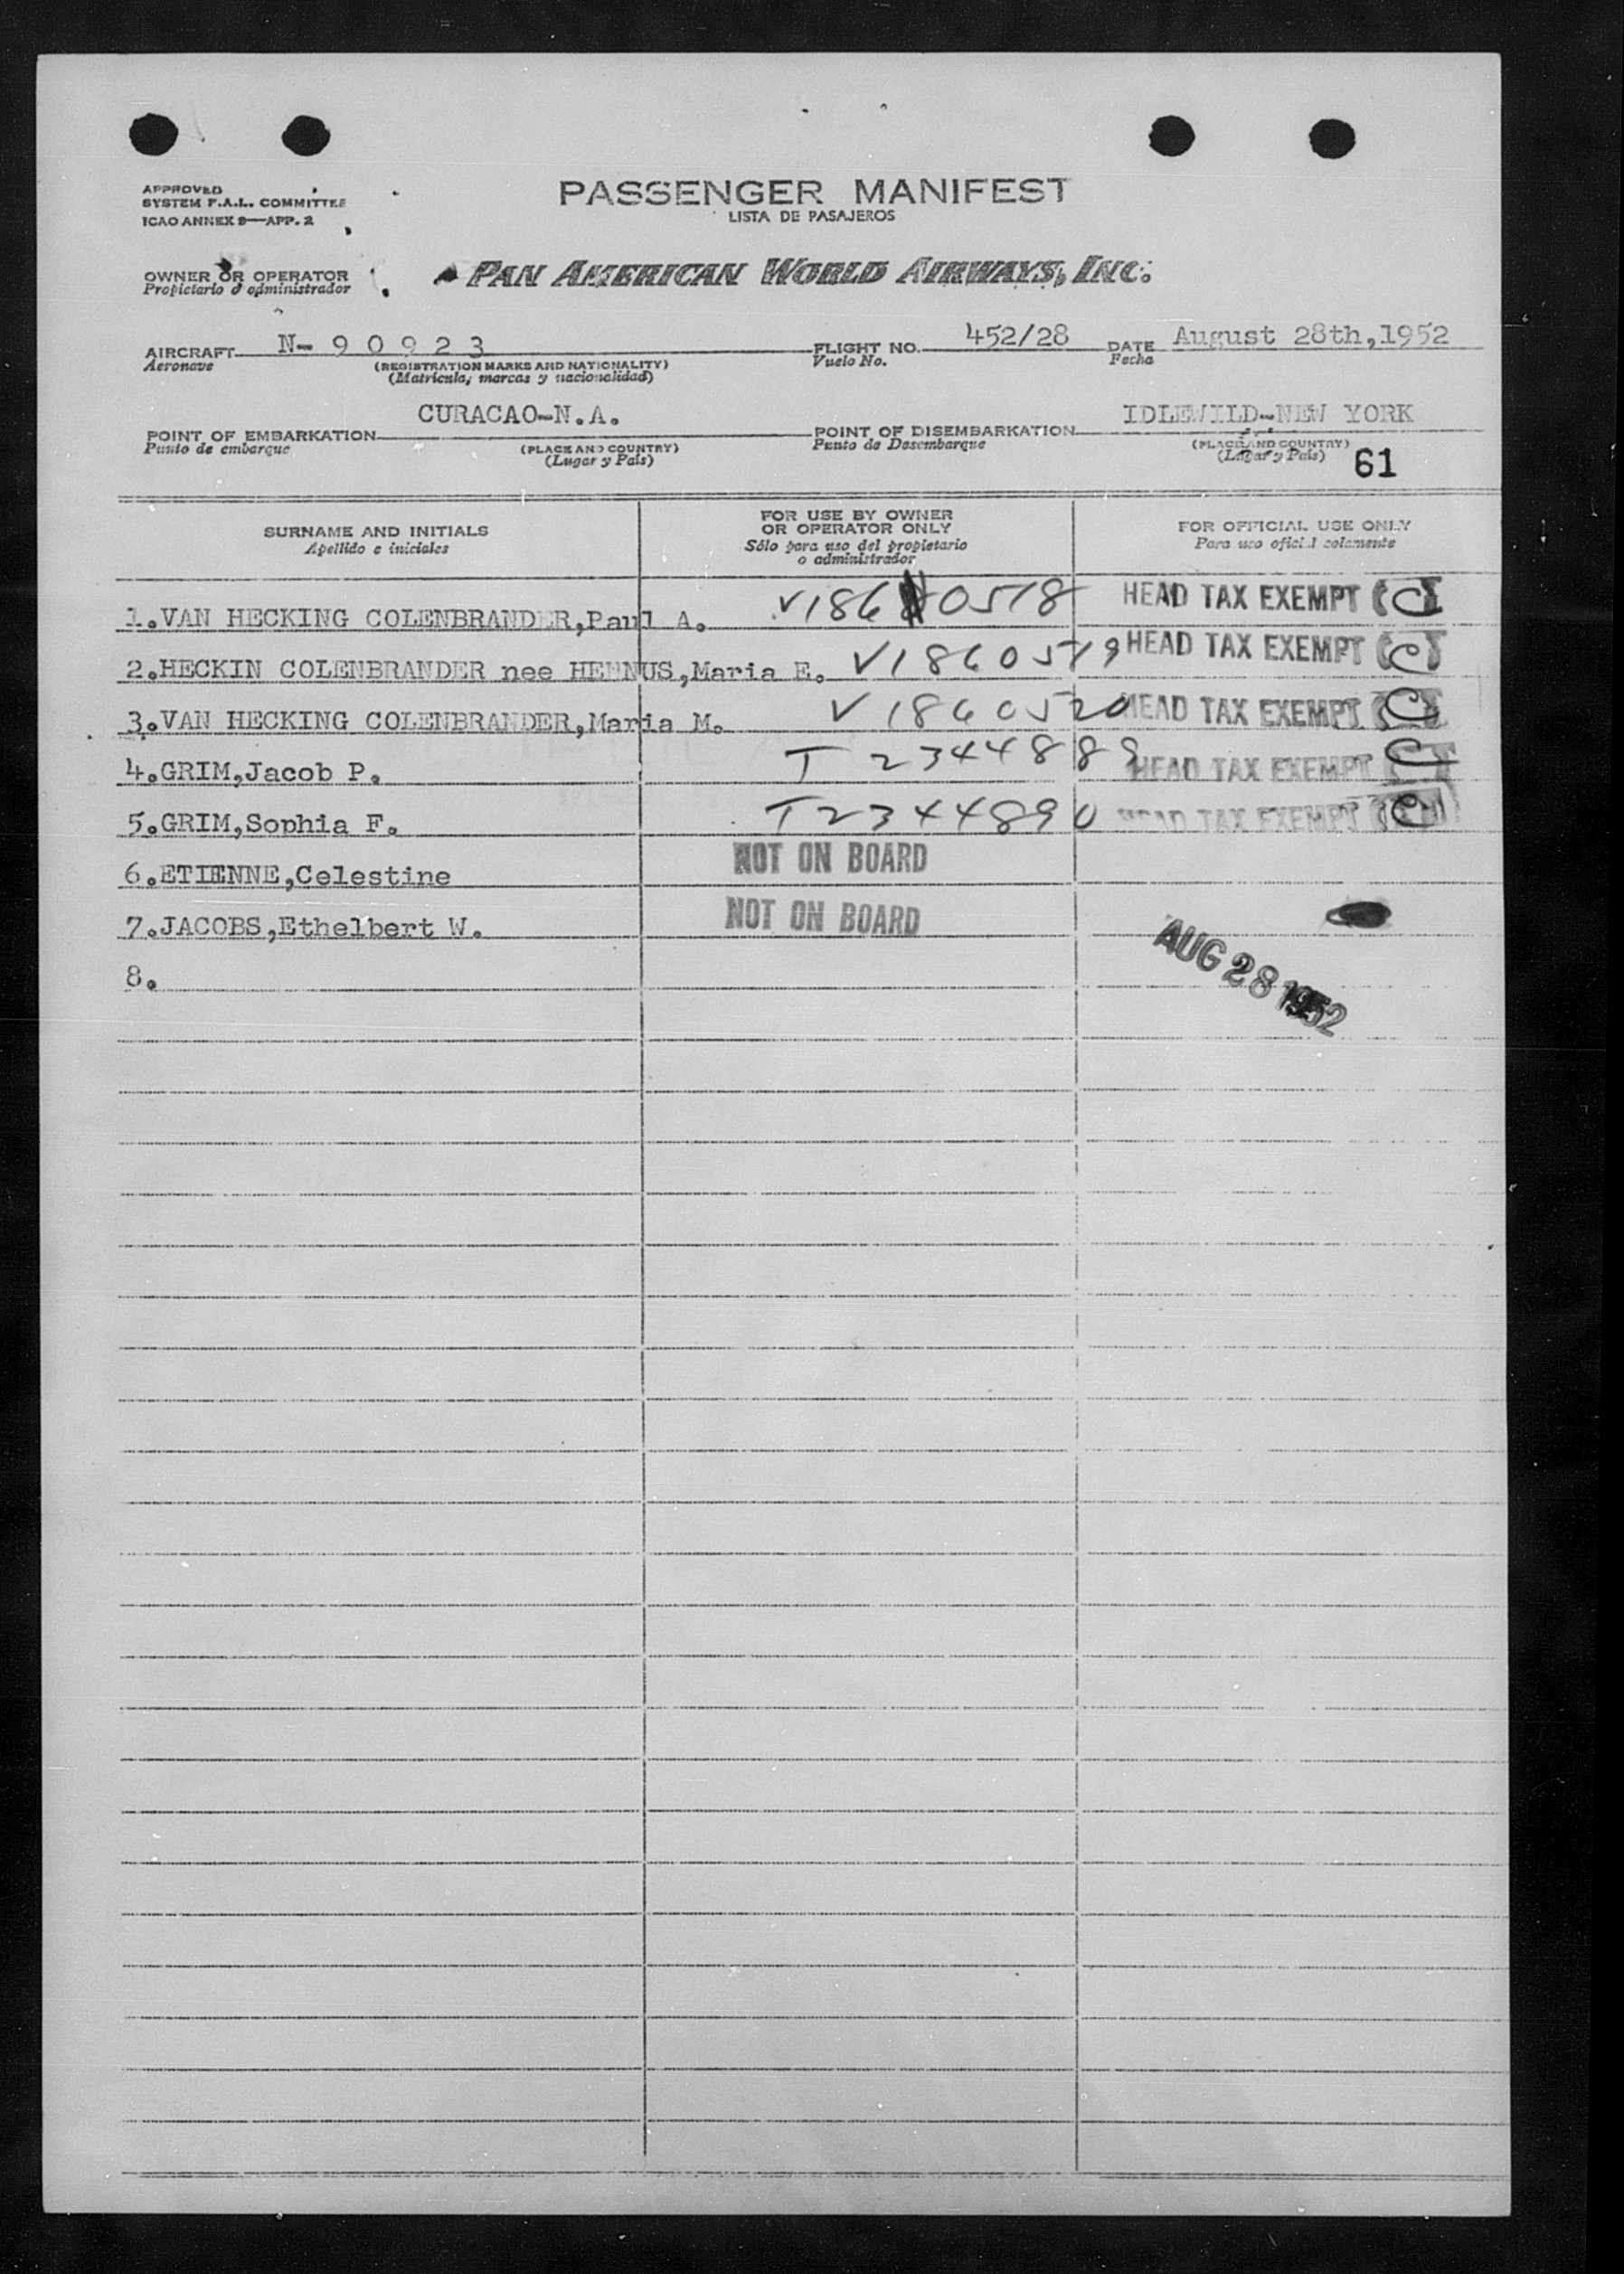 APPROVED
SYSTEM F.A.L. COMMITTEE
ICAO ANNEX 9—APP. 2
PASSENGER MANIFEST
LISTA DE PASAJEROS
OWNER OR OPERATOR
Propietario o administrador
PAN AMERICAN WORLD AIRWAYS, INC.
AIRCRAFT N-90923
Aeronave
(REGISTRATION MARKS AND NATIONALITY)
(Matricula, marcas y nacionalidad)
FLIGHT NO. 452/28
Vuelo No.
DATE August 28th,1952
Fecha
POINT OF EMBARKATION CURACAO-N.A.
Punto de embarque
(PLACE AND COUNTRY)
(Lugar y País)
POINT OF DISEMBARKATION IDLEWILD-NEW YORK
Punto de Desembarque
(PLACE AND COUNTRY)
(Lugar y País)
61
SURNAME AND INITIALS
Apellido e iniciales
FOR USE BY OWNER
OR OPERATOR ONLY
Sólo para uso del propietario
o administrador
FOR OFFICIAL USE ONLY
Para uso oficial solamente
1.VAN HECKING COLENBRANDER,Paul A. V1860518 HEAD TAX EXEMPT
2.HECKIN COLENBRANDER nee HENNUS,Maria E. V1860519 HEAD TAX EXEMPT
3.VAN HECKING COLENBRANDER,Maria M. V1860520 HEAD TAX EXEMPT
4.GRIM,Jacob P. T2344889 HEAD TAX EXEMPT
5.GRIM,Sophia F. T2344890 HEAD TAX EXEMPT
6.ETIENNE,Celestine NOT ON BOARD
7.JACOBS,Ethelbert W. NOT ON BOARD
8.
AUG 28 1952